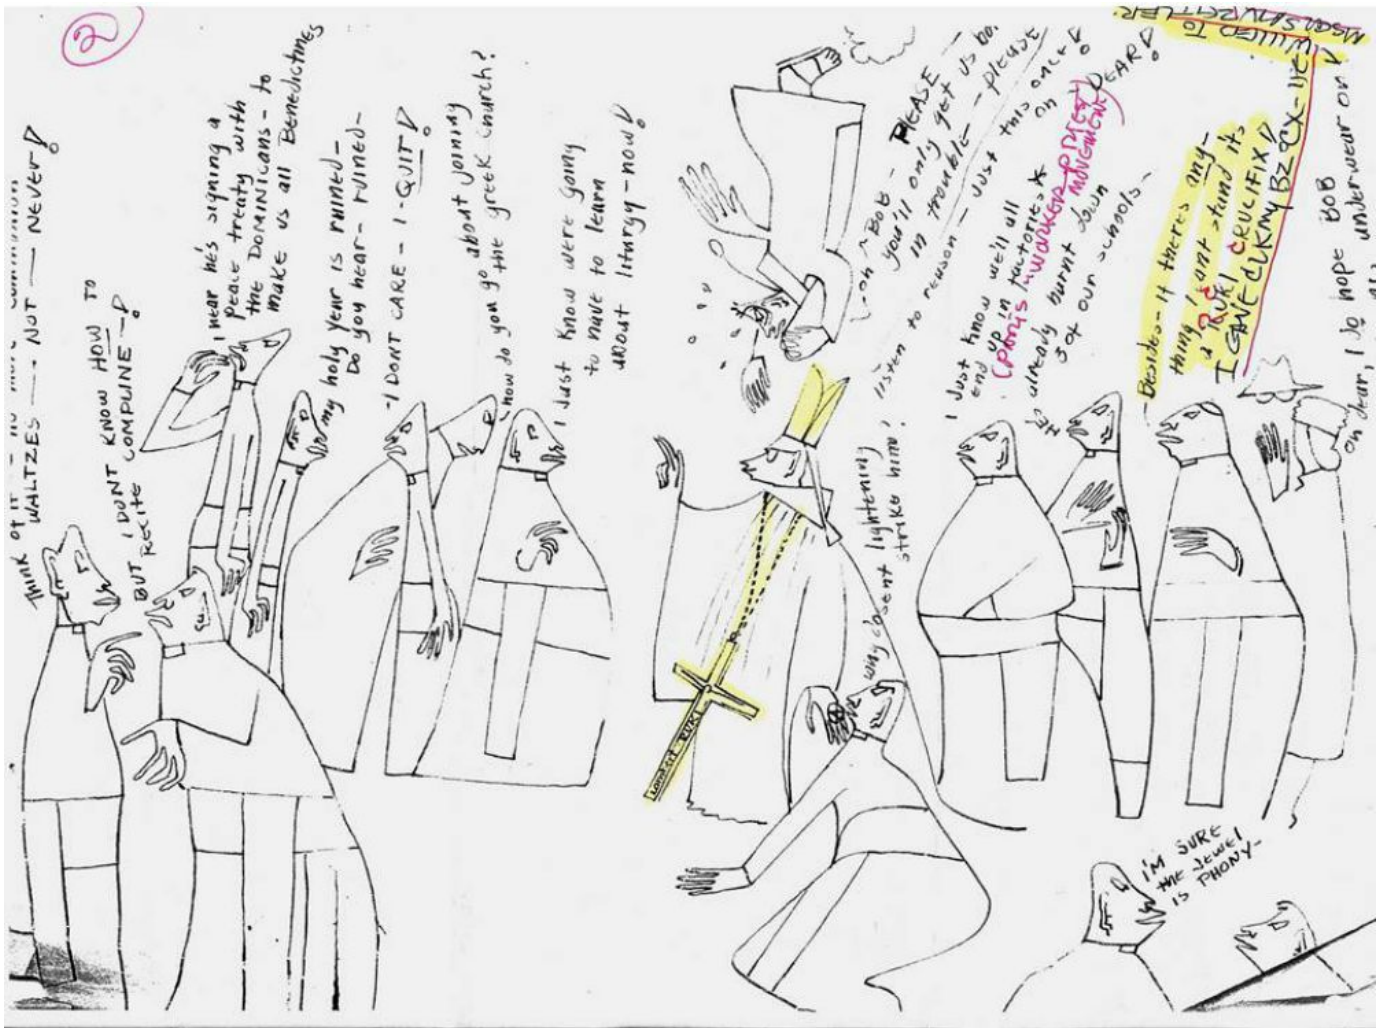 2
Think of it - no more communion
WALTZES - - NOT - NEVER!
I DONT KNOW HOW TO
BUT RECITE COMPLINE -!
I hear he's signing a
peace treaty with
the DOMINICANS - to
make us all Benedictines
my holy year is RUINED -
Do you hear - ruined -
- I DONT CARE - I - QUIT!
how do you go about joining
the greek church?
I Just Know were going
to have to learn
about liturgy - now!
BOB - PLEASE -
you'll only get us bo.
in trouble - please
listen to reason - Just this once!
why doesent lightening
strike him!
I Just know we'll all
end up in factories *
(PARIS - WORKER PRIEST
MOVEMENT)
on DEAR!
He's already burnt down
3 of our schools -
Besides - if theres any-
thing I cant stand its
a RUKI CRUCIFIX!
I GAVE dUK my BZ CX - HE
WILLED TO
oh dear, I do hope BOB
underwear on!
Lond cit RUKI
I'M SURE
the Jewel
IS PHONY -